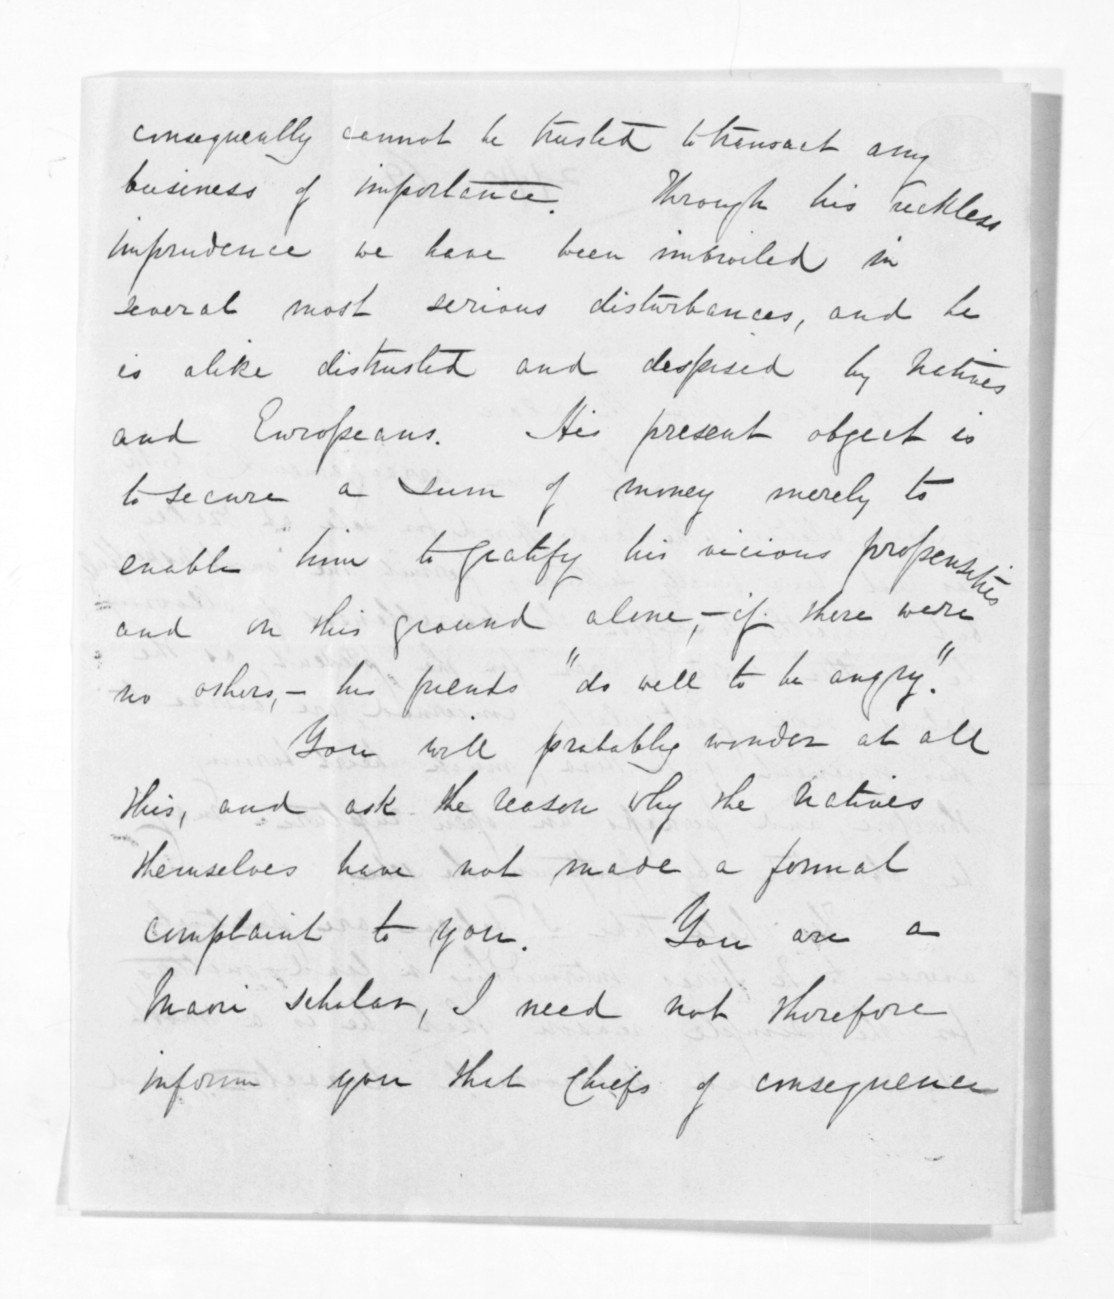 consequently cannot be trusted to transact any
business of importance. Through his reckless
imprudence we have been imbroiled in
several most serious disturbances, and he
is alike distrusted and despised by Natives
and Europeans. His present object is
to secure a sum of money merely to
enable him to gratify his vicious propensities
and on this ground alone, – if there were
no others, – his friends "do well to be angry".
You will probably wonder at all
this, and ask the reason why the Natives
themselves have not made a formal
complaint to you. You are a
Maori scholar, I need not therefore
inform you that Chiefs of consequence